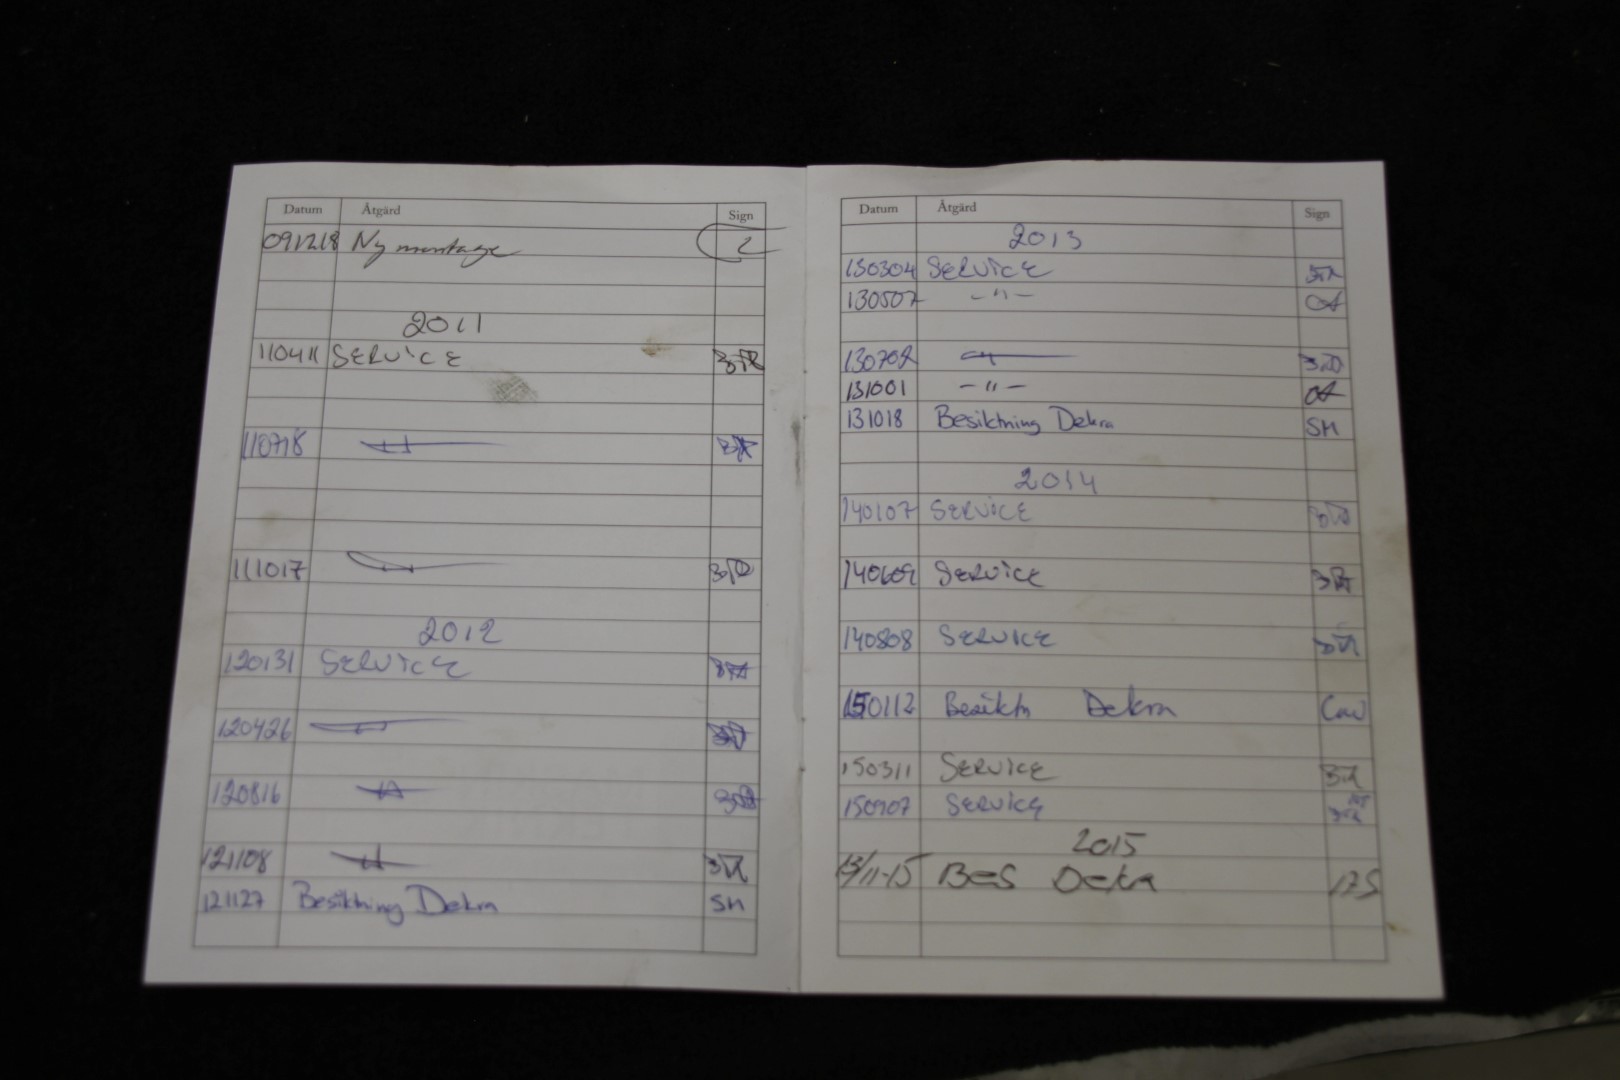 Datum Åtgärd Sign
091218 Ny montage
2011
110411 SERVICE
110718 -"-
111017 -"-
2012
120131 SERVICE
120426 -"-
120816 -"-
121108 -"-
121127 Besiktning Dekra SH
Datum Åtgärd Sign
2013
130304 SERVICE
130507 -"-
130702 -"-
131001 -"-
131018 Besiktning Dekra SH
2014
140107 SERVICE
SERVICE
140808 SERVICE
150112 Besiktn Dekra
150311 SERVICE
150907 SERVICE
2015
13/11-15 BES Dekra